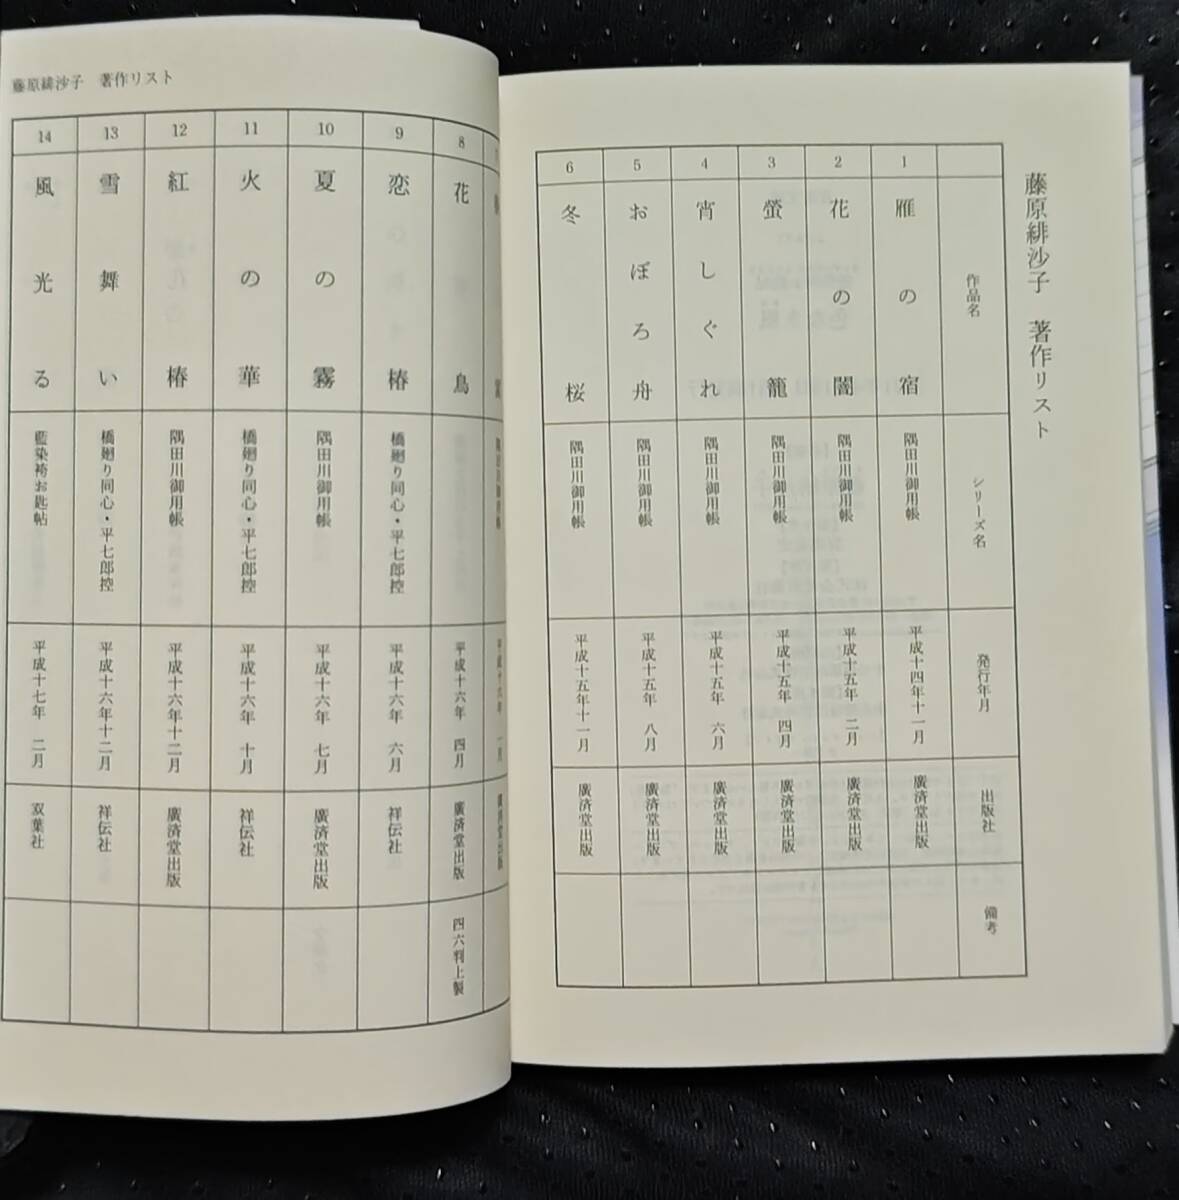 藤原緋沙子　著作リスト
作品名　シリーズ名　発行年月　出版社　備考
1　雁の宿　隅田川御用帳　平成十四年十一月　廣済堂出版
2　花の闇　隅田川御用帳　平成十五年　二月　廣済堂出版
3　螢籠　隅田川御用帳　平成十五年　四月　廣済堂出版
4　宵しぐれ　隅田川御用帳　平成十五年　六月　廣済堂出版
5　おぼろ舟　隅田川御用帳　平成十五年　八月　廣済堂出版
6　冬桜　隅田川御用帳　平成十五年十一月　廣済堂出版
藤原緋沙子　著作リスト
隅田川御用帳　平成十六年　一月　廣済堂出版
8　花鳥　平成十六年　四月　廣済堂出版　四六判上製
9　恋椿　橋廻り同心・平七郎控　平成十六年　六月　祥伝社
10　夏の霧　隅田川御用帳　平成十六年　七月　廣済堂出版
11　火の華　橋廻り同心・平七郎控　平成十六年　十月　祥伝社
12　紅椿　隅田川御用帳　平成十六年十二月　廣済堂出版
13　雪舞い　橋廻り同心・平七郎控　平成十六年十二月　祥伝社
14　風光る　藍染袴お匙帖　平成十七年　二月　双葉社